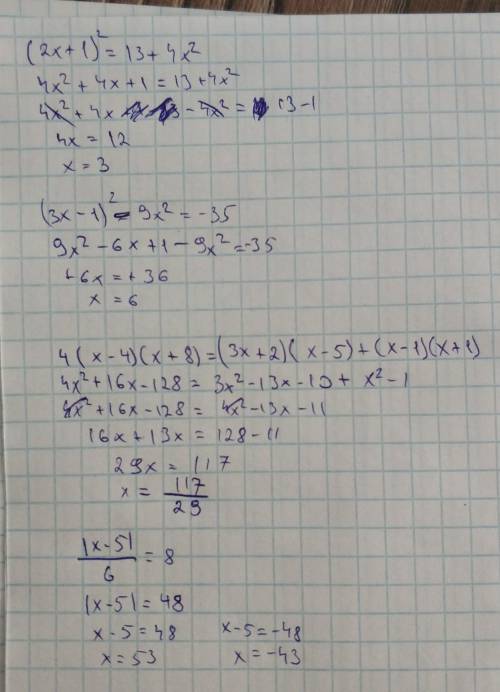 (2x+1)² = 13 + 4x²
4x² + 4x + 1 = 13 + 4x²
4x² + 4x - 4x² = 13 - 1
4x = 12
x = 3
(3x - 1)² - 9x² = -35
9x² - 6x + 1 - 9x² = -35
+6x = +36
x = 6
4(x-4)(x+8) = (3x+2)(x-5) + (x-1)(x+1)
4x² + 16x - 128 = 3x² - 13x - 10 + x² - 1
4x² + 16x - 128 = 4x² - 13x - 11
16x + 13x = 128 - 11
29x = 117
x = 117/29
|x-5|/6 = 8
|x-5| = 48
x - 5 = 48 x - 5 = -48
x = 53 x = -43